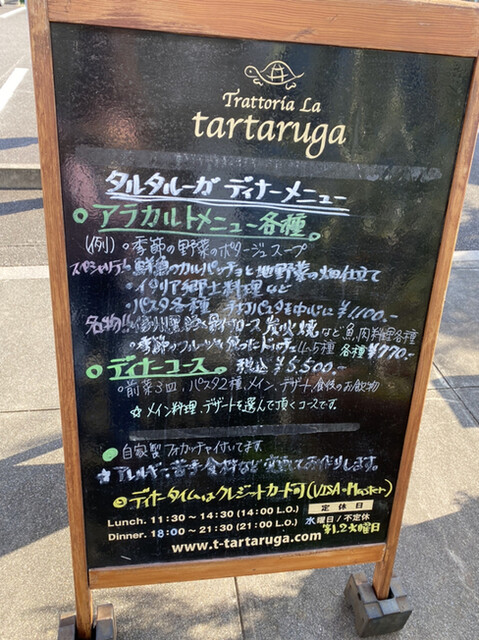 Trattoria La
tartaruga
タルタルーガ ディナーメニュー
アラカルトメニュー各種。
(例)。季節の野菜のポタージュスープ
スペシャリテ 鮮魚のカルパッチョと地野菜の畑仕立て
・イタリア郷土料理など
・パスタ各種 手打パスタを中心に ¥1,100.-
名物!! 骨付ロース炭火焼など魚、肉料理各種
・季節のフルーツを 5種 各種¥770.-
ディナーコース。 税込 ¥5,500.-
。前菜3皿、パスタ2種、メイン、デザート、食後のお飲物
☆メイン料理、デザートを選んで頂くコースです。
自家製フォカッチャ付いてます。
☆アレルギー、苦手食材など変更してお作りします。
ディナータイムはクレジットカード可(VISA・Master)
Lunch. 11:30 ~ 14:30 (14:00 L.O.) 定休日
Dinner. 18:00 ~ 21:30 (21:00 L.O.) 水曜日/不定休
第1.2火曜日
www.t-tartaruga.com